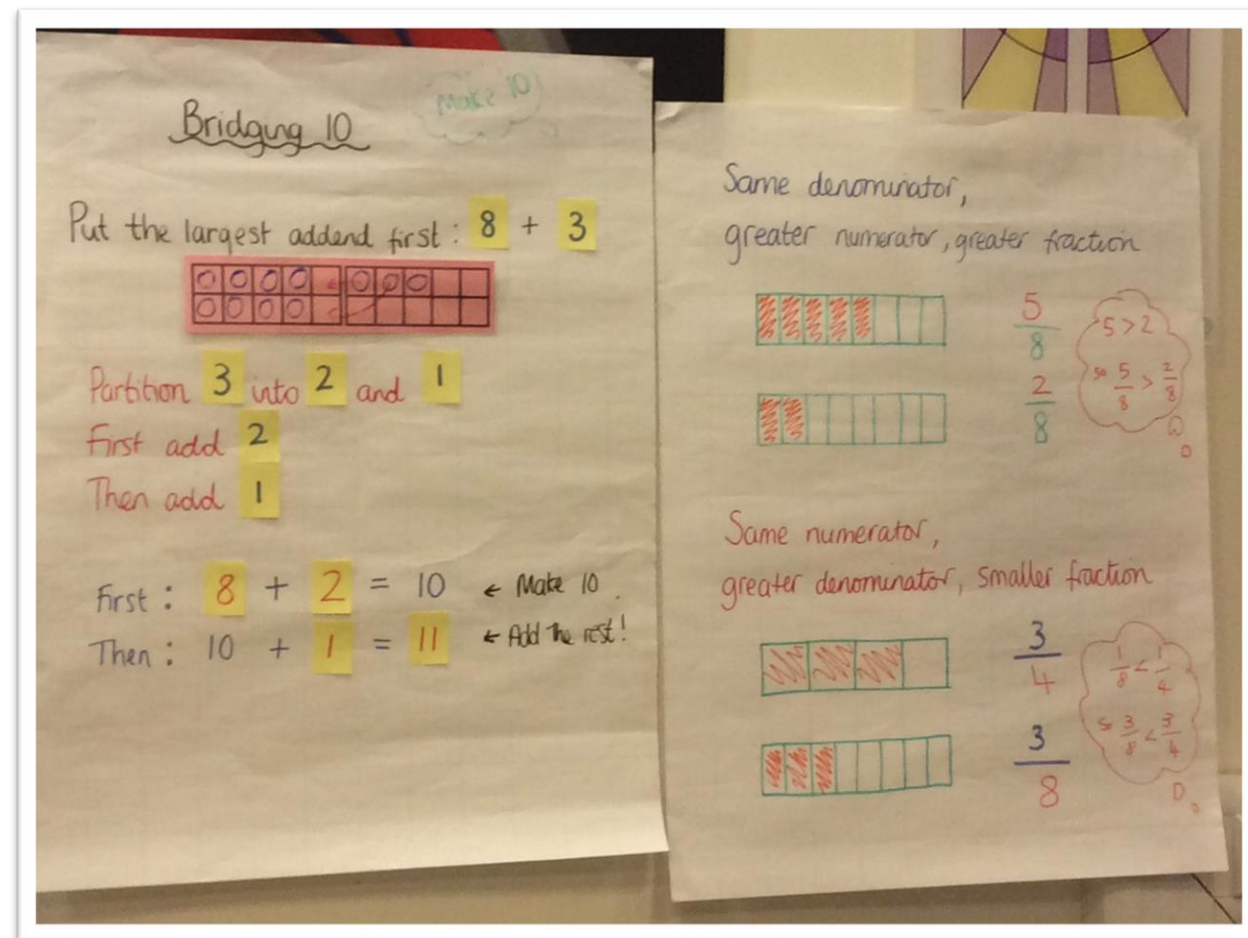 Bridging 10
Make 10!
Put the largest addend first: 8 + 3
Partition 3 into 2 and 1
First add 2
Then add 1
First: 8 + 2 = 10 ← Make 10.
Then: 10 + 1 = 11 ← Add the rest!
Same denominator,
greater numerator, greater fraction
5/8
5 > 2
so 5/8 > 2/8
2/8
Same numerator,
greater denominator, smaller fraction
3/4
1/8 < 1/4
so 3/8 < 3/4
3/8